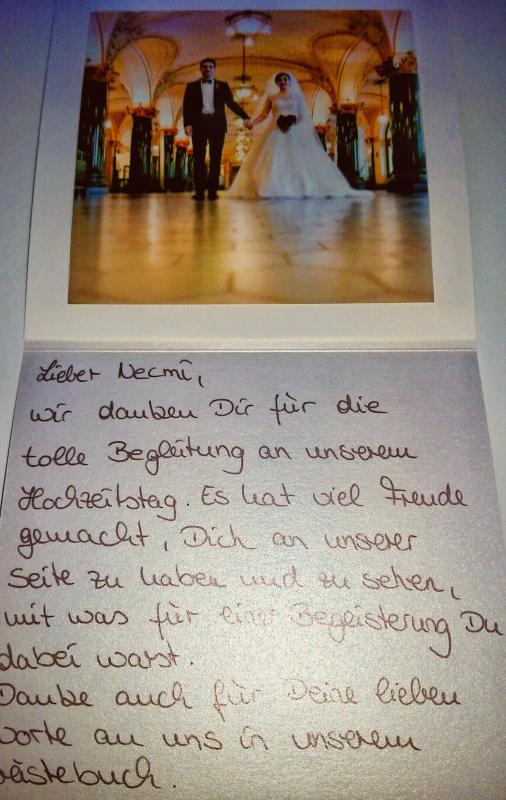 Lieber Necmi,
wir danken Dir für die
tolle Begleitung an unserem
Hochzeitstag. Es hat viel Freude
gemacht, Dich an unserer
Seite zu haben und zu sehen,
mit was für einer Begeisterung Du
dabei warst.
Danke auch für Deine lieben
Worte an uns in unserem
Gästebuch.